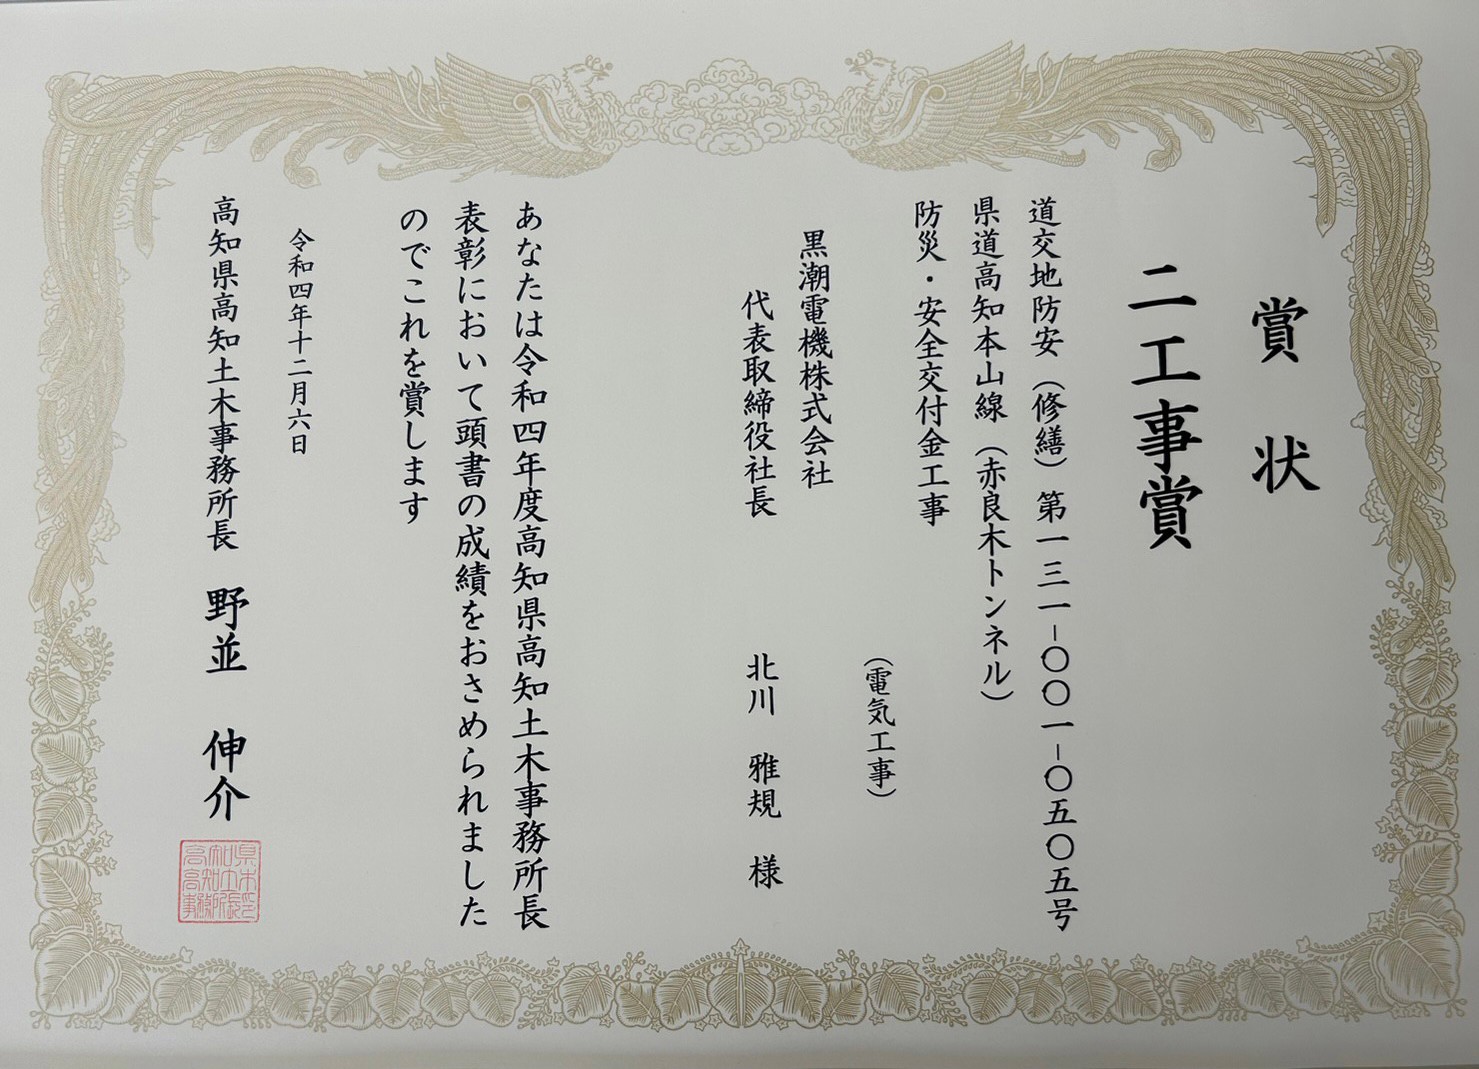 賞状
二工事賞
道交地防安（修繕）第一三一－〇〇一－〇五〇五号
県道高知本山線（赤良木トンネル）
防災・安全交付金工事
（電気工事）
黒潮電機株式会社
代表取締役社長　北川　雅規　様
あなたは令和四年度高知県高知土木事務所長
表彰において頭書の成績をおさめられました
のでこれを賞します
令和四年十二月六日
高知県高知土木事務所長　野並　伸介